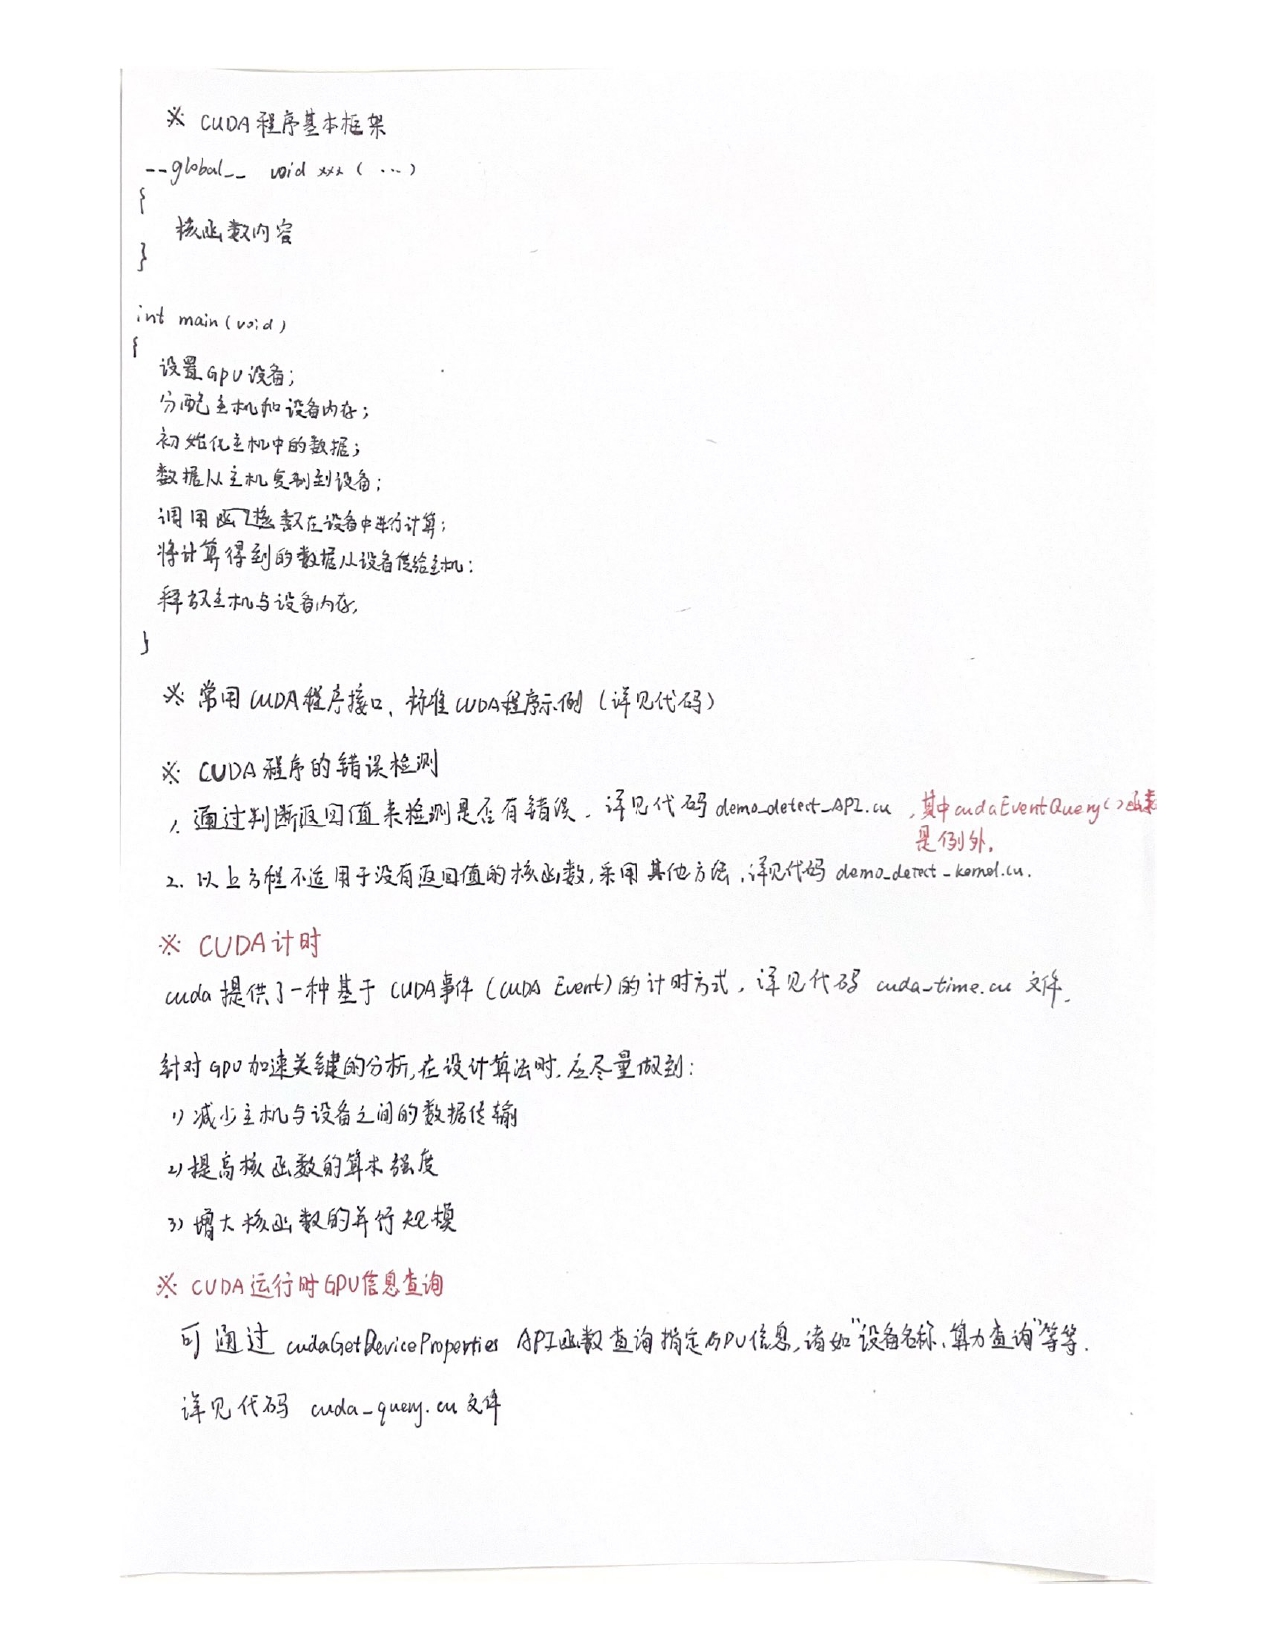 ※ CUDA程序基本框架
__global__ void xxx ( ... )
{
核函数内容
}
int main(void)
{
设置GPU设备;
分配主机和设备内存;
初始化主机中的数据;
数据从主机复制到设备;
调用函核数在设备中进行计算;
将计算得到的数据从设备传给主机;
释放主机与设备内存,
}
※ 常用CUDA程序接口、标准CUDA程序示例 (详见代码)
※ CUDA程序的错误检测
1. 通过判断返回值来检测是否有错误. 详见代码 demo_detect_API.cu ,其中cudaEventQuery()函数
是例外.
2. 以上方程不适用于没有返回值的核函数,采用其他方法,详见代码 demo_detect_kernel.cu.
※ CUDA计时
cuda提供了一种基于 CUDA事件 (CUDA Event) 的计时方式, 详见代码 cuda_time.cu 文件.
针对GPU加速关键的分析,在设计算法时,应尽量做到:
1) 减少主机与设备之间的数据传输
2) 提高核函数的算术强度
3) 增大核函数的并行规模
※ CUDA运行时GPU信息查询
可通过 cudaGetDeviceProperties API函数查询指定GPU信息,诸如"设备名称、算力查询"等等.
详见代码 cuda_query.cu 文件